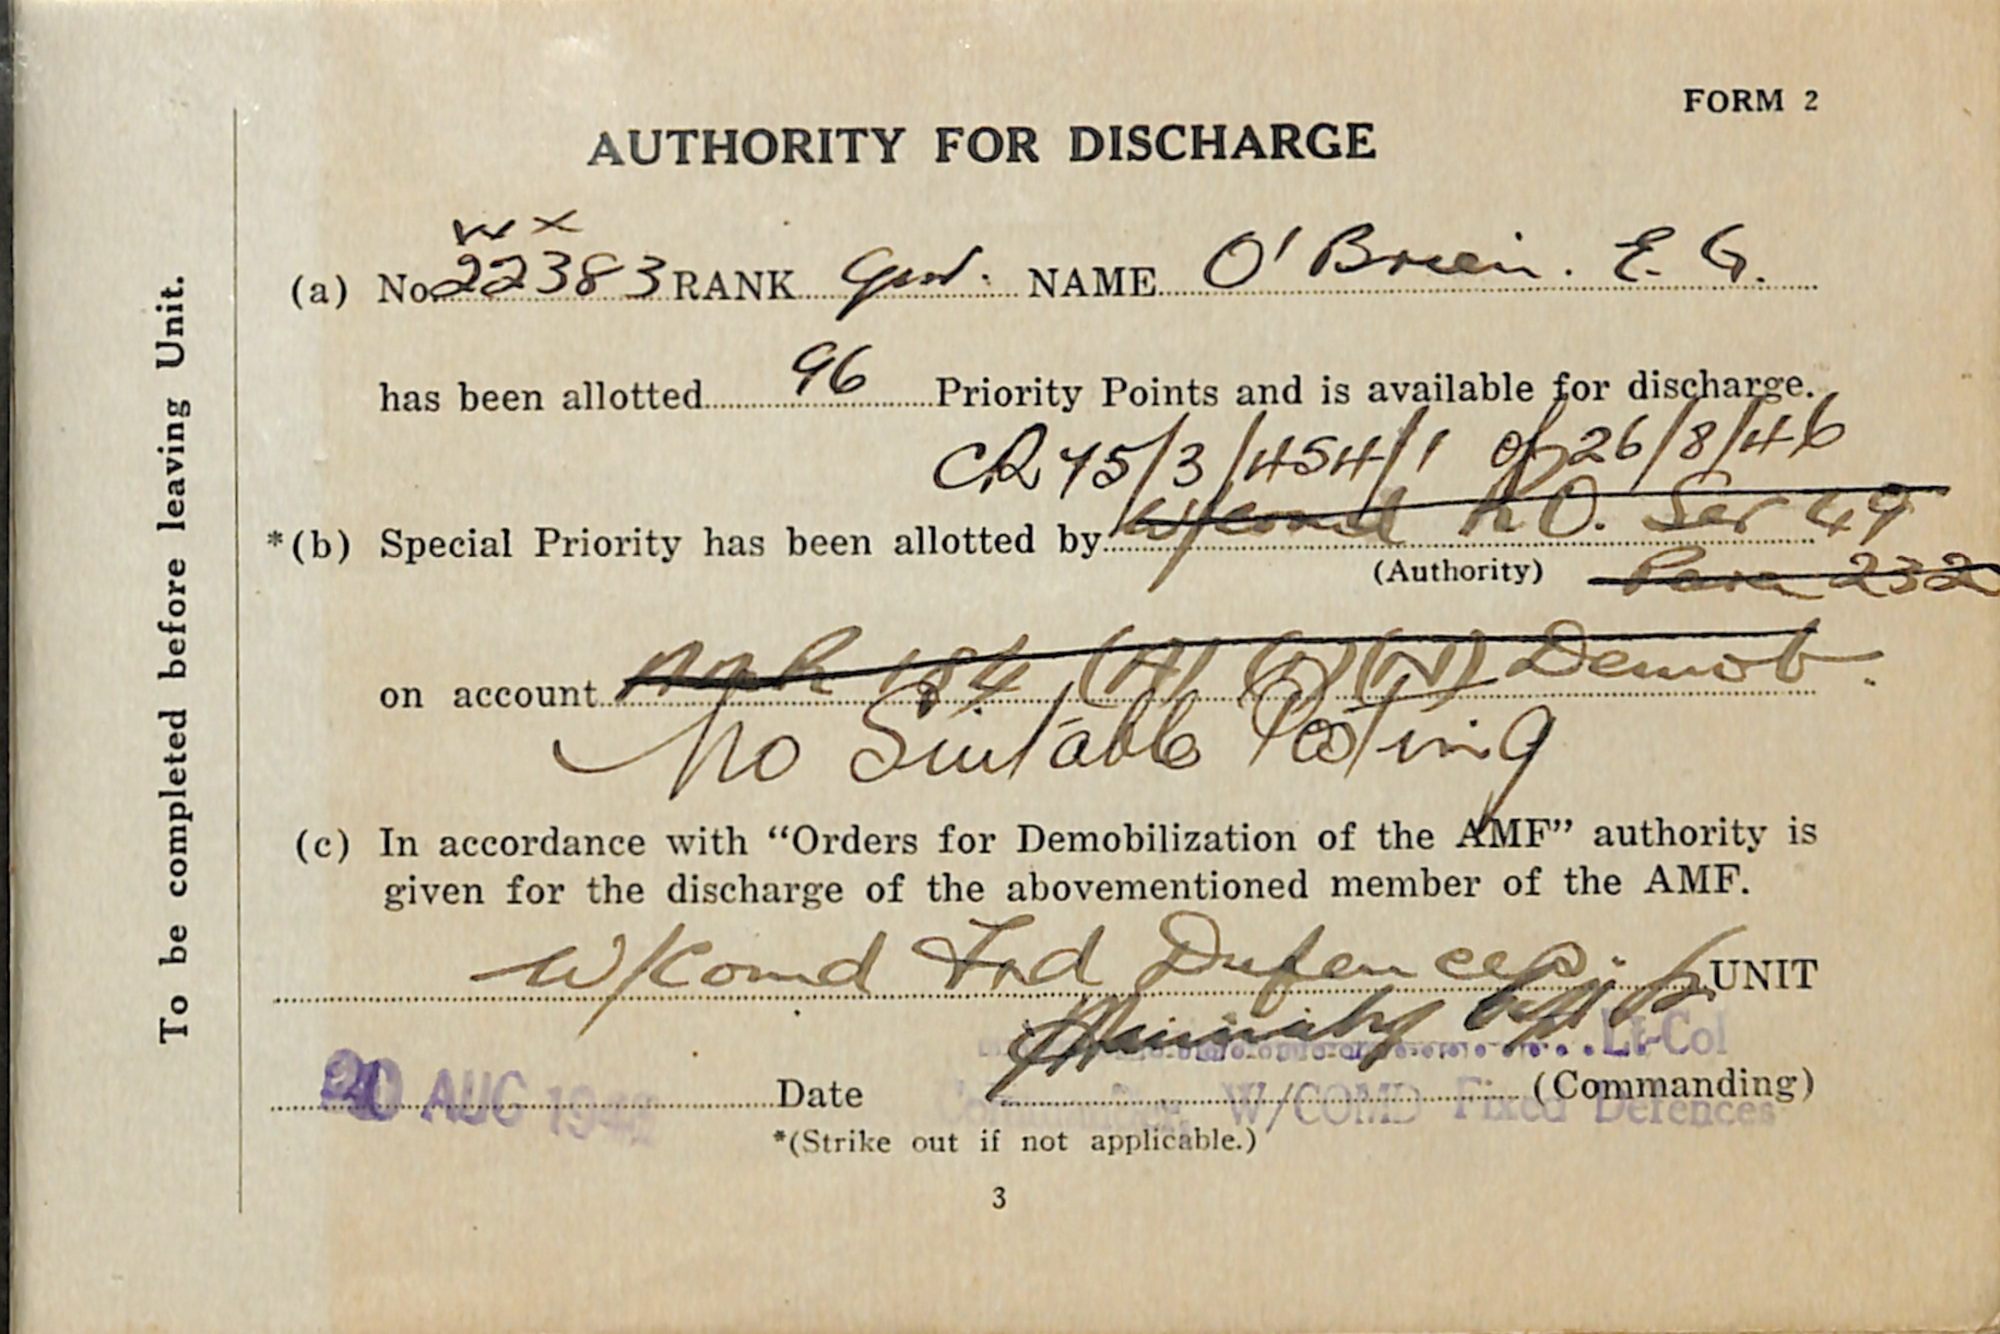 FORM 2
AUTHORITY FOR DISCHARGE
WX
(a) No. 22383 RANK Gnr. NAME O'Brien. E. G.
has been allotted 96 Priority Points and is available for discharge.
CR 75/3/454/1 of 26/8/46
*(b) Special Priority has been allotted by W/Comd RO. Ser 49
(Authority) Para 232
on account Demob.
No Suitable Posting
(c) In accordance with "Orders for Demobilization of the AMF" authority is
given for the discharge of the abovementioned member of the AMF.
W/Comd Fxd Defences. UNIT
Lt-Col
AUG Date (Commanding)
W/COMD Fixed Defences
*(Strike out if not applicable.)
3
To be completed before leaving Unit.